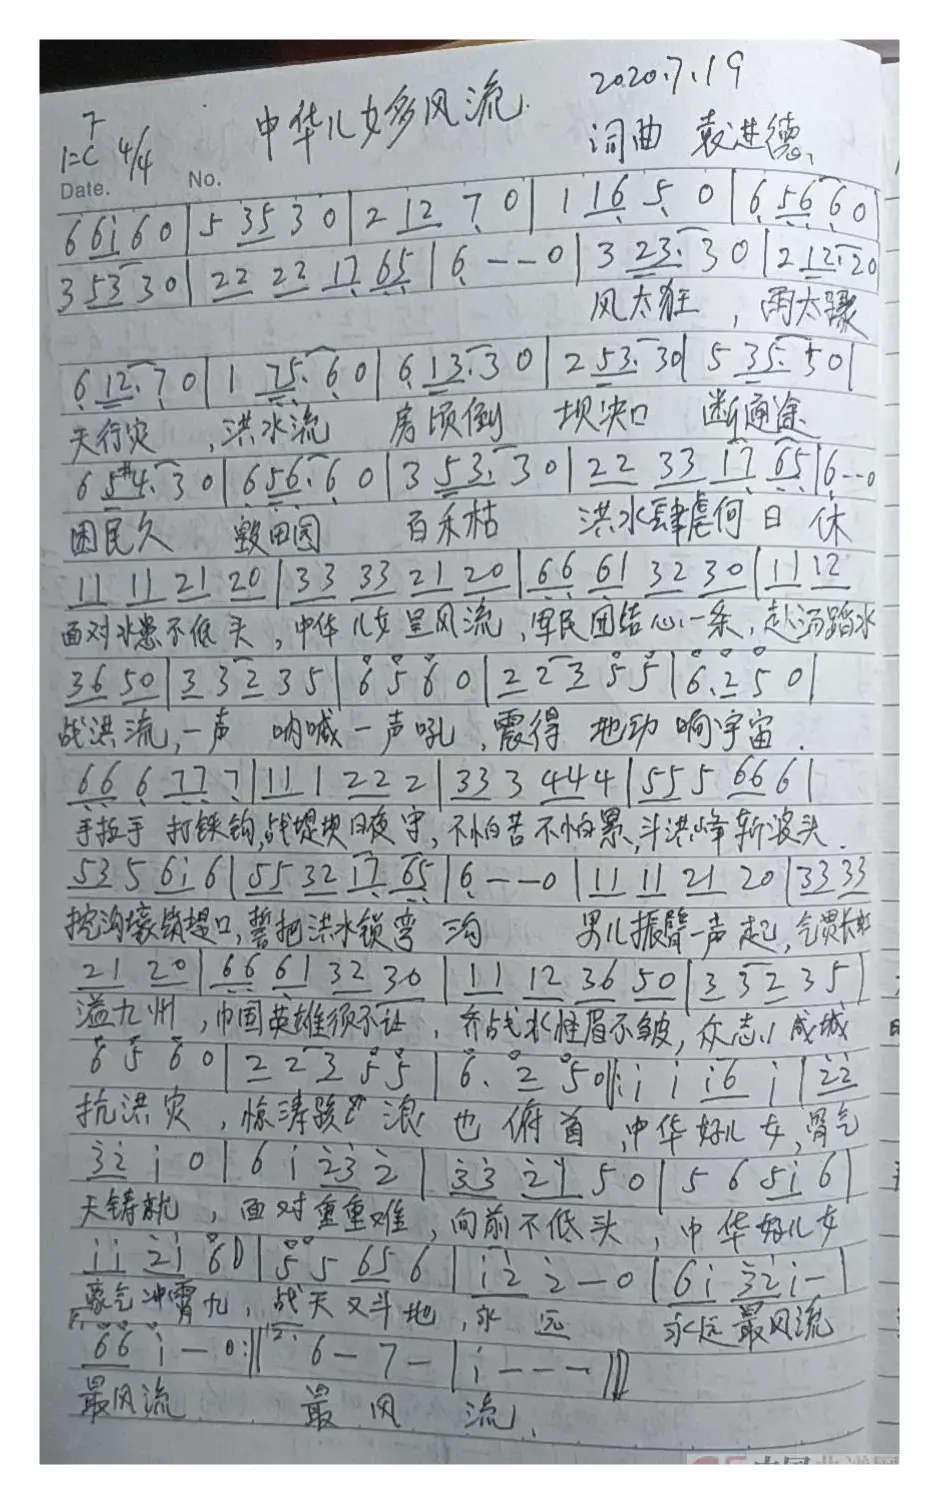 中华儿女多风流. 2020.7.19
F
1=C 4/4 词曲 袁进德
Date. No.
6 6i 6 0 | 5 35 3 0 | 2 12 7 0 | 1 16 5 0 | 6 56 6 0 |
3 53 3 0 | 22 22 17 65 | 6 - - 0 | 3 23. 3 0 | 2 12. 20
风太狂 , 雨太骤
6 12. 7 0 | 1 75. 6 0 | 6 13. 3 0 | 2 53. 30 | 5 35. 50 |
天行灾 , 洪水流 房顷倒 坝决口 断通途
6 5#4. 3 0 | 6 56. 6 0 | 3 53. 3 0 | 22 33 17 65 | 6 - - 0
困民久 毁田园 百禾枯 洪水肆虐何日休
11 11 21 20 | 33 33 21 20 | 66 61 32 30 | 11 12
面对水患不低头 , 中华儿女呈风流 , 军民团结心一条 , 赴汤踏水
36 50 | 3 3 2 3 5 | 6 5 6 0 | 2 2 3 5 5 | 6. 2 5 0 |
战洪流 , 一声 呐喊一声吼 , 震得 地动 啊宇宙 .
66 6 77 7 | 11 1 22 2 | 33 3 44 4 | 55 5 66 6 |
手拉手 打铁钩, 战堤坝日夜守, 不怕苦不怕累, 斗洪峰斩波头.
53 5 6i 6 | 55 32 17 65 | 6 - - - 0 | 11 11 21 20 | 33 33
挖沟壕锁堤口, 誓把洪水锁弯沟 男儿振臂一声起, 气贯长虹
21 20 | 66 61 32 30 | 11 12 36 50 | 3 3 2 3 5 |
溢九州 , 中国英雄须不让 , 齐战水怪眉不皱, 众志 成城
6 5 6 0 | 2 2 3 5 5 | 6. 2 5 0 ||: i i i6 i | 22
抗洪灾 , 惊涛骇浪也俯首 , 中华好儿女, 骨气
32 i 0 | 6 i 23 2 | 33 2i 5 0 | 5 6 5i 6 |
天铸就 , 面对重重难 , 向前不低头 , 中华好儿女
ii 2i 60 | 5 5 65 6 | i2 2 - 0 | 6i 32 i - |
豪气冲霄九 , 战天又斗地 , 永远 永远最风流
1. 66 i - 0 :|| 2. 6 - 7 - | i - - - |||
最风流 最风流 .